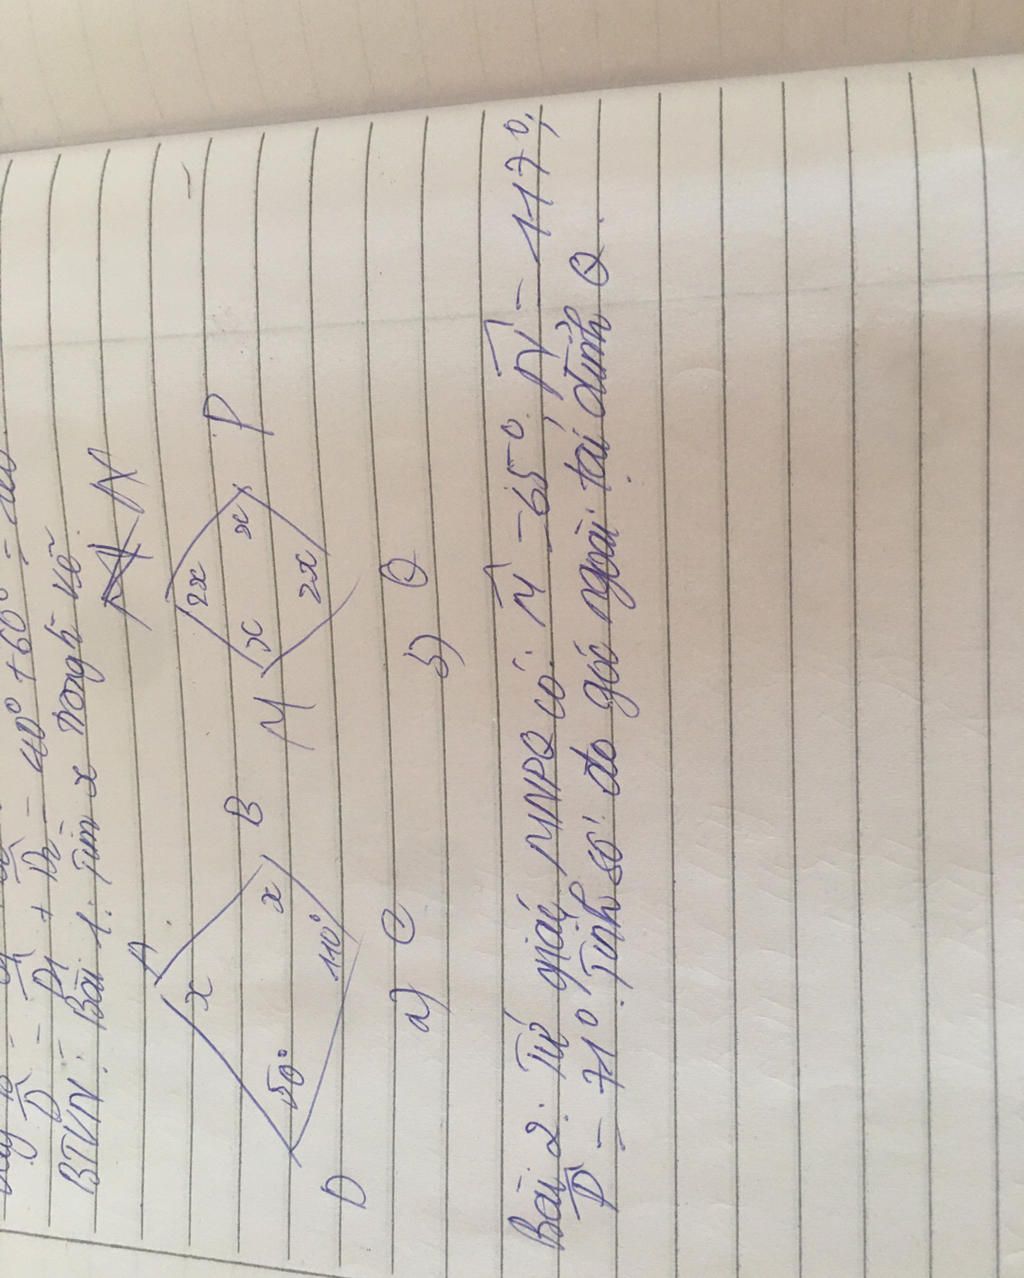 D̂ = D̂1 + D̂2 = 40° + 60° =
BTVN: Bài 1: Tìm x trong h vẽ
A
B
x
x
50°
110°
D
a) C
N
P
2x
x
x
2x
M
b) Q
Bài 2: Tứ giác MNPQ có: M̂ = 65°, N̂ = 117°,
P̂ = 71°. Tính số đo góc ngoài tại đỉnh Q.